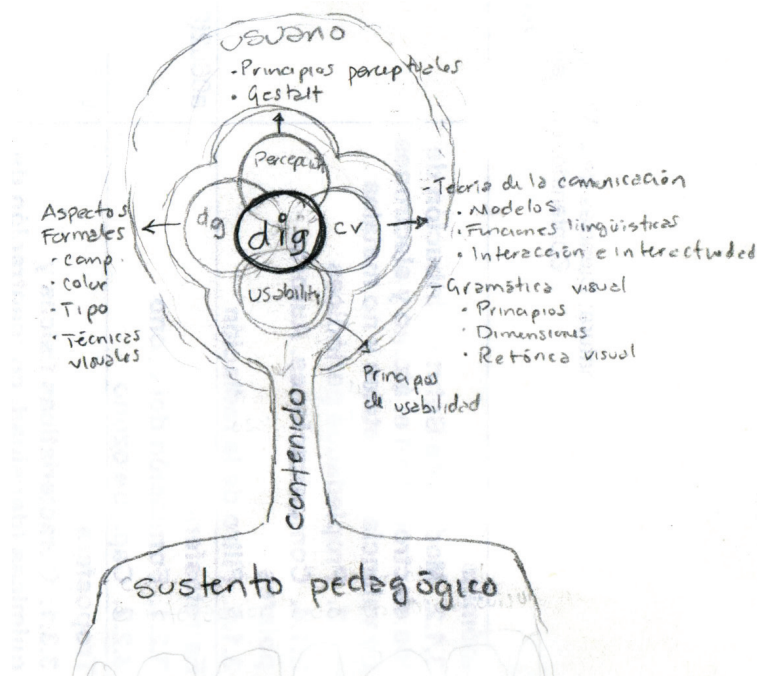 usuario
- Principios perceptuales
• Gestalt
Percepción
dg
dig
cv
usability
Aspectos
Formales
• comp.
• color
• Tipo
• Técnicas
visuales
- Teoría de la comunicación
• Modelos
• Funciones lingüísticas
• Interacción e interactividad
- Gramática visual
• Principios
• Dimensiones
• Retórica visual
Principios
de usabilidad
contenido
sustento pedagógico